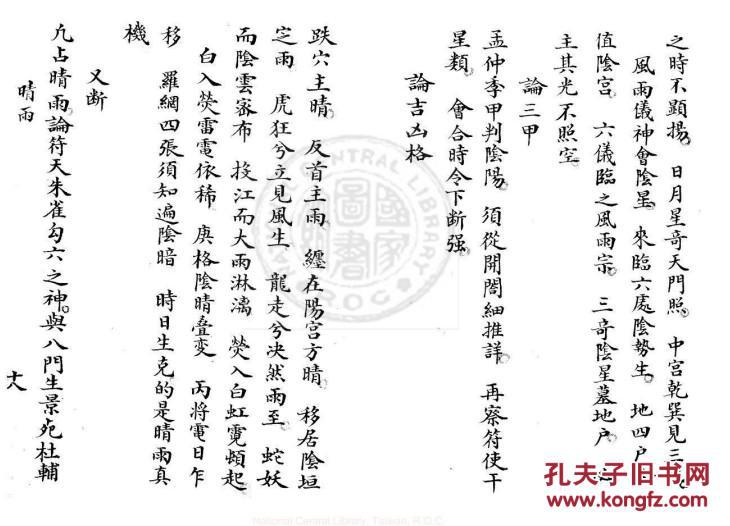 之時不顯揚 日月星奇天門照 中宮乾巽見三
風雨儀神會陰星 來臨六處陰勢生 地四戶
值陰宮 六儀臨之風雨宗 三奇陰星墓地戶
主其光不照空
論三甲
孟仲季甲判陰陽 須從開闔細推詳 再察符使干
星類 會合時令下斷强
論吉凶格
跌穴主晴 反首主雨 纏在陽宮方晴 移居陰垣
定雨 虎狂兮立見風生 龍走兮决然雨至 蛇妖
而陰雲密布 投江而大雨淋漓 熒入白虹霓頻起
白入熒雷電依稀 庚格陰晴疊变 丙將電日乍
移 羅網四張須知遍陰暗 時日生克的是晴雨真
機
又斷
凢占晴雨論符天朱雀勾六之神與八門生景死杜輔
晴雨
十八
國家圖書館藏
CENTRAL LIBRARY
R.O.C.
孔夫子旧书网
www.kongfz.com
National Central Library, Taiwan, R.O.C.